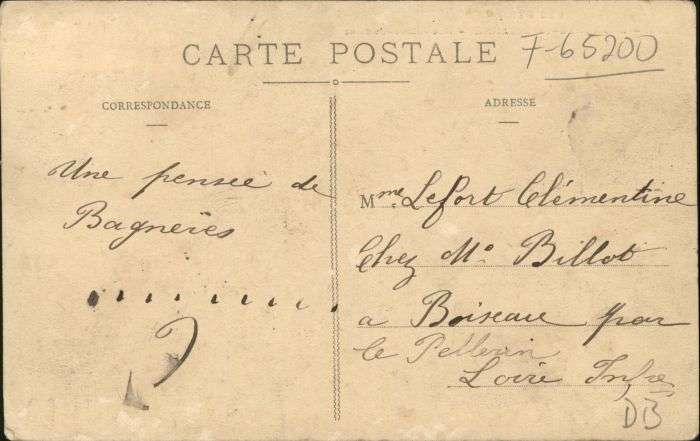 CARTE POSTALE
F-65200
CORRESPONDANCE
ADRESSE
Une pensée de
Bagnères
Mme. Lefort Clémentine
Chez Mr Billot
a Boiseau par
le Pellerin
Loire Infre
DB